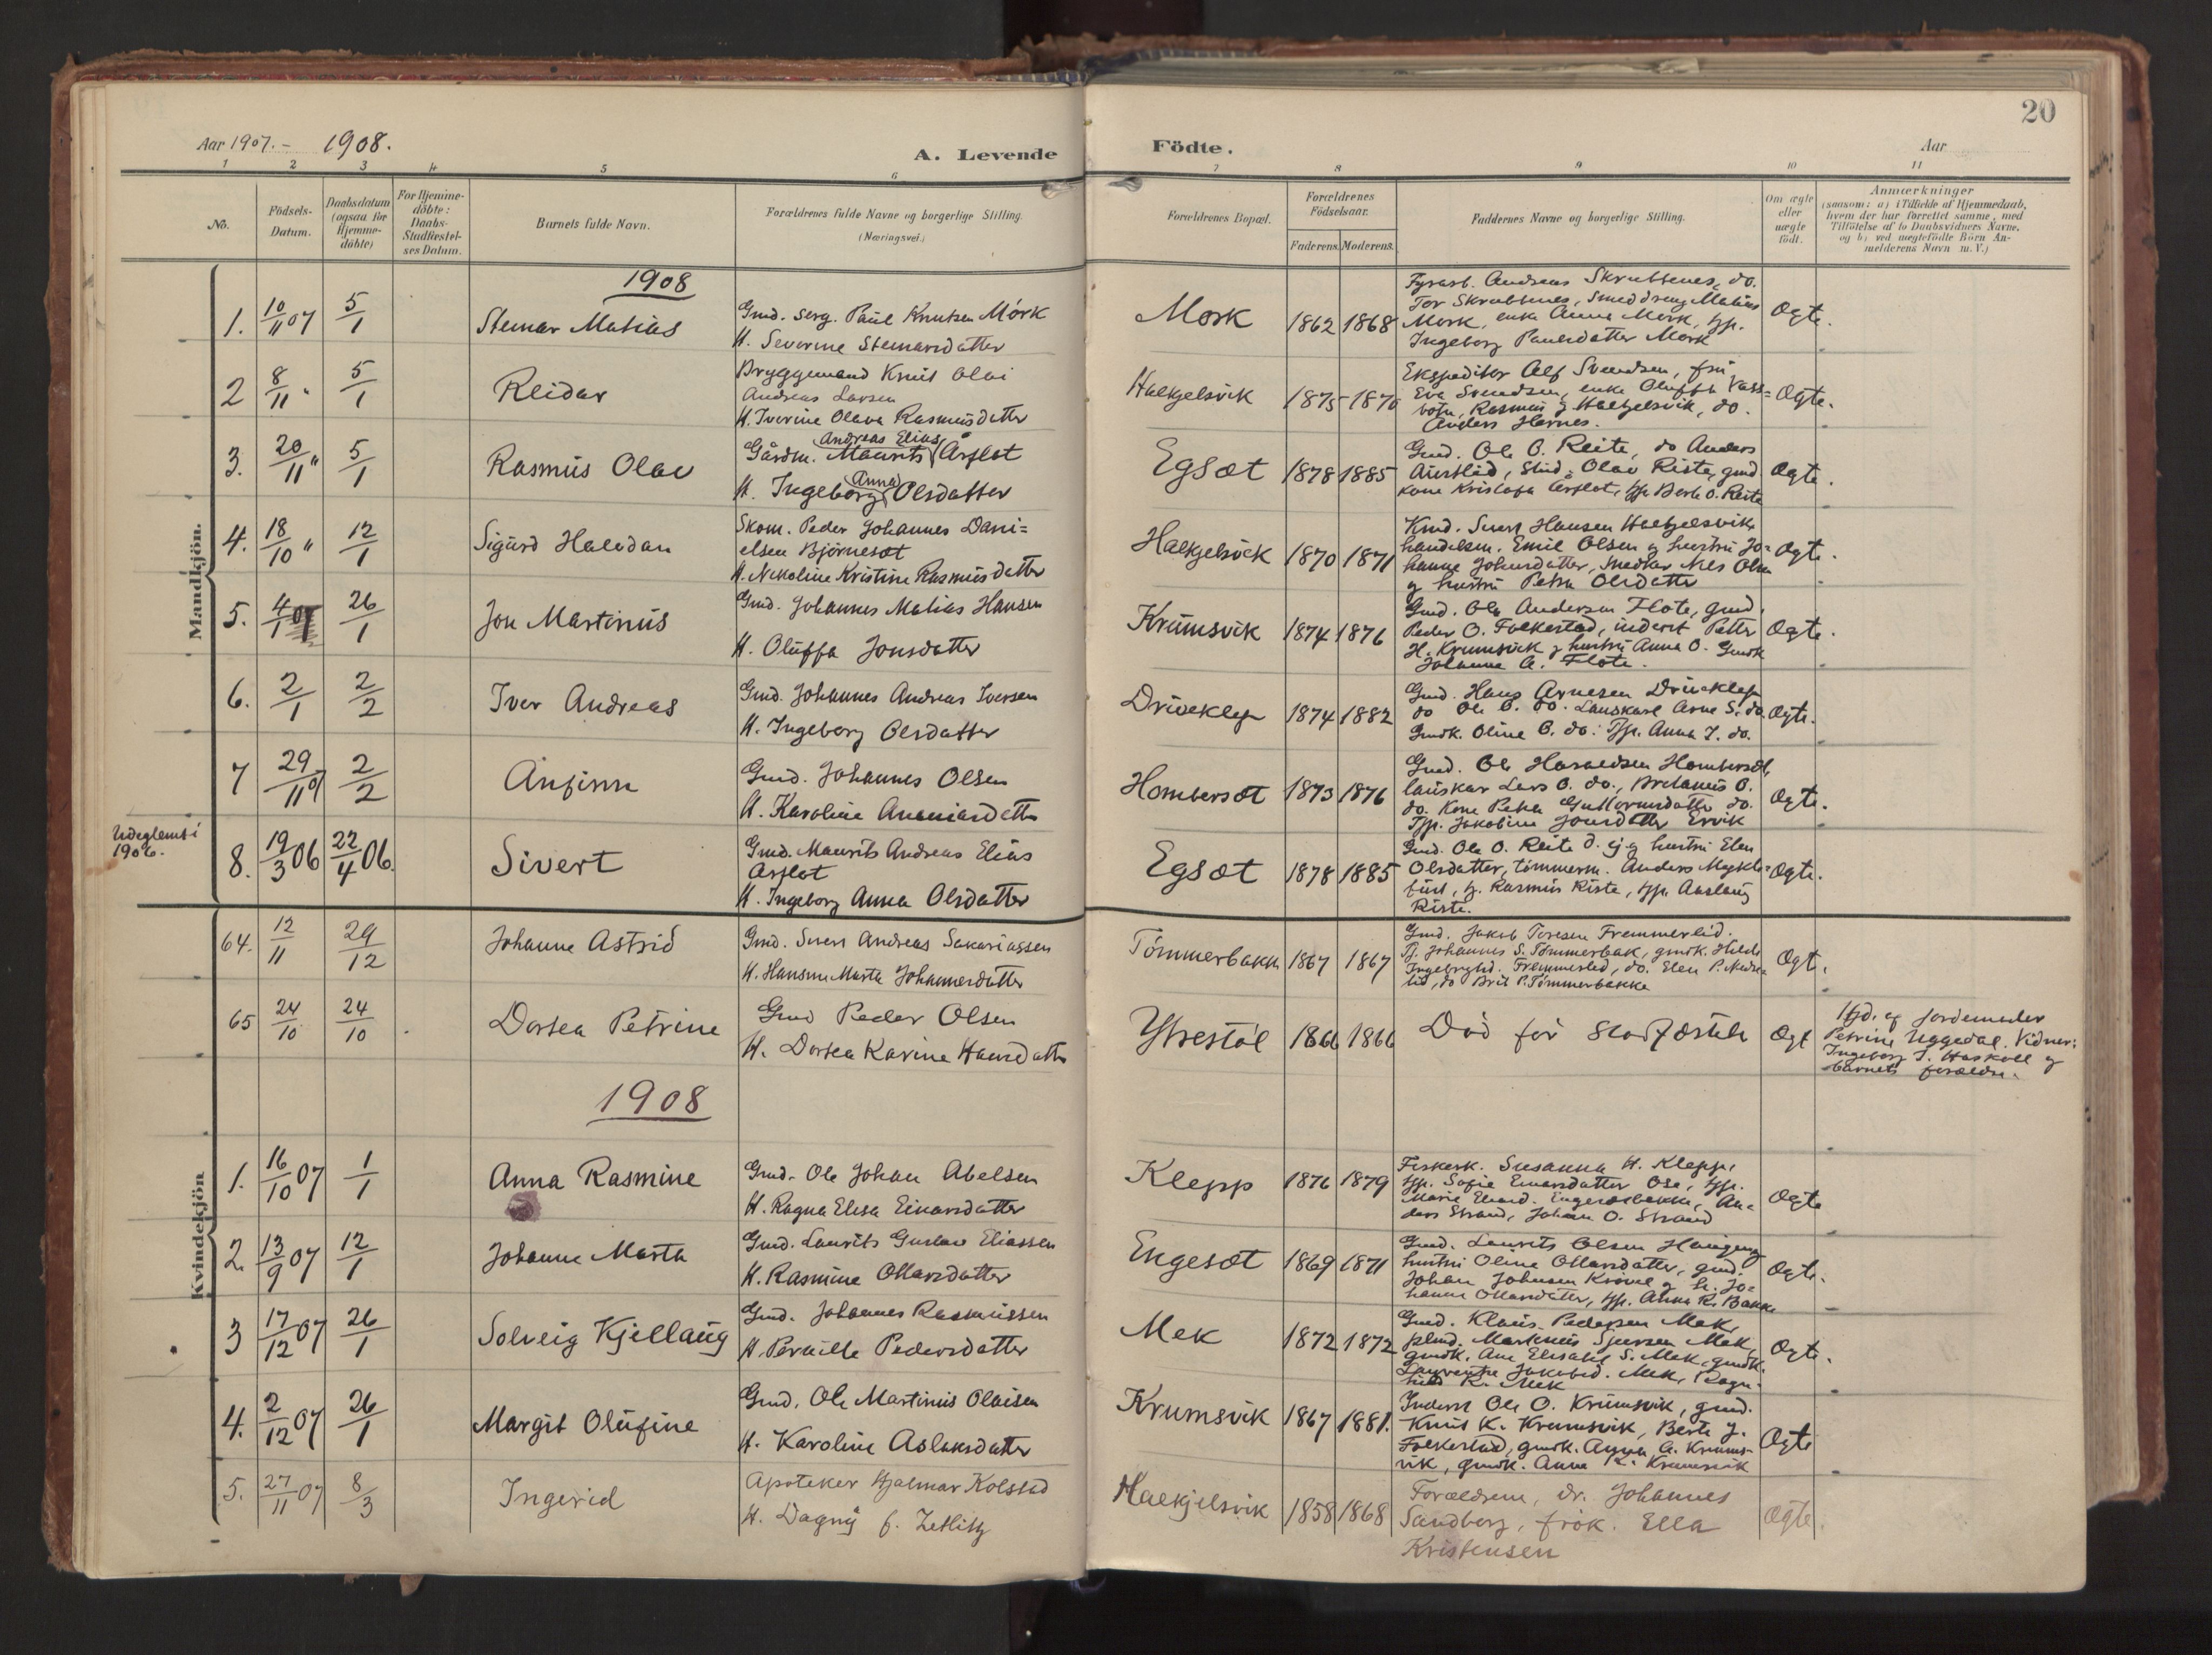 20
Aar 1907.- 1908.
A. Levende
Födte.
Aar
1 2 3 4 5 6 7 8 9 10 11
No.
Födsels-
Datum.
Daabsdatum
(ogsaa for
Hjemme-
döbte)
For Hjemme-
döbte:
Daabs-
Stadfestel-
ses Datum.
Barnets fulde Navn.
Forældrenes fulde Navne og borgerlige Stilling.
(Næringsvei.)
Forældrenes Bopæl.
Forældrenes
Födselsaar.
Faderens. Moderens.
Faddernes Navne og borgerlige Stilling.
Om ægte
eller
uægte
födt.
Anmærkninger
(saasom: a) i Tilfælde af Hjemmedaab,
hvem der har forrettet samme, med
Tilföielse af to Daabsvidners Navne.
og b) ved uægtefödte Börn An-
melderens Navn m. V.)
Mandkjön.
1908
1. 10/11 07 5/1
Steinar Matias
Gmd. serg. Paul Knutsen Mörk
H. Severine Steinarsdatter
Mork
1862 1868
Fyrarb. Andreas Skrubbenes, do.
Tor Skrubbenes, smeddreng Matias
Mork, enke Anna Mork, tjp.
Ingeborg Paulsdatter Mork
Ægte.
2 8/11 " 5/1
Reidar
Bryggemand Knut Olai
Andreas Larsen
H. Iverine Olava Rasmusdatter
Halkjelsvik
1875 1870
Ekspeditor Alf Svendsen, fru
Eva Svendsen, enke Oluffa Vass=
botn, Rasmus J. Halkjelsvik, do.
Anders Hovnes.
Ægte.
3. 20/11 " 5/1
Rasmus Olav
Andreas Elias
Gårdm. Maurits Årflot
Anna
H. Ingeborg Olsdatter
Egsæt
1878 1885
Gmd. Ole O. Reite, do Anders
Aurstad, Stud. Olav Riste, gmd
kone Kristofa Årflot, tjp Berte O. Reite
Ægte.
4. 18/10 " 12/1
Sigurd Halvdan
Skom. Peder Johannes Dani=
elsen Björnesæt
H. Nikoline Kristine Rasmusdatter
Halkjelsvik
1870 1871
Kmd. Sivert Hansen Halkjelsvik
handelsm. Emil Olsen og hustru Jo=
hanne Johnsdatter, snedker Nils Olsen
og hustru Petra Olsdatter
Ægte.
5. 4/1 26/1
Jon Martinus
Gmd. Johannes Matias Hansen
H. Oluffa Jonsdatter
Krumsvik
1874 1876
Gmd. Ole Andersen Flote, gmd.
Peder O. Folkestad, inderst Petter
H. Krumsvik og hustru Anna O. Gmdk
Johanna A. Flote.
Ægte.
6. 2/1 2/2
Iver Andreas
Gmd. Johannes Andreas Iversen
H. Ingeborg Olsdatter
Driveklep
1874 1882
Gmd. Hans Arnesen Driveklep
do Ole O. do. Lauskarl Arne S. do.
Gmdk. Oline O. do. Tjp. Anna I. do.
Ægte.
7 29/11 07 2/2
Anfinn
Gmd. Johannes Olsen
H. Karoline Ananiasdatter
Hombersæt
1873 1876
Gmd. Ole Haraldsen Hombersæt,
lauskar Lars O. do., Bretanus O.
do. Kone Petra Guttormsdatter do.
Tjp. Jakobine Jonsdatter Ervik
Ægte.
Udeglemt i
1906.
8. 19/3 06 22/4 06.
Sivert
Gmd. Maurits Andreas Elias
Årflot
H. Ingeborg Anna Olsdatter
Egsæt
1878 1885
Gmd. Ole O. Reite d. y. og hustru Elen
Olsdatter, tömmerm. Anders Mykle=
bust, g. Rasmus Riste, tjp. Aaslaug
Riste.
Ægte.
Kvindekjön
64. 12/11 29/12
Johanne Astrid
Gmd. Sivert Andreas Sakariassen
H. Hansine Marta Johannesdatter
Tömmerbakk
1867 1867
Gmd. Jakob Toresen Fremmerlid.
Tj. Johannes S. Tömmerbak, gmdk. Hilde
Ingebrgtd. Fremmerlid, do. Elen P. Nedre=
lid, do Brit P. Tömmerbakke
Ægt.
65 24/10 24/10
Dortea Petrine
Gmd Peder Olsen
H. Dortea Karine Hansdatter
Ytrestöl
1866 1866
Död för Stadfæstelse
Ægt
Hjd. af Jordemoder
Petrine Uggedal. Vidner:
Ingeborg J. Haskoll og
barnets forældre.
1908
1. 16/10 07 1/1
Anna Rasmine
Gmd. Ole Johan Abelsen
H. Ragna Elisa Einarsdatter
Klepp
1876 1879
Fiskerk. Susanna H. Klepp,
tjp. Sofie Einarsdatter Ose, tjp.
Marie Elvard. Engesetbakke, An=
ders Strand, Johan O. Strand
Ægte
2. 13/9 07 12/1
Johanne Marta
Gmd. Laurits Gustav Eliassen
H. Rasmine Ottarsdatter
Engesæt
1869 1871
Gmd. Laurits Olsen Haugen og
hustru Oline Ottarsdatter, gmd.
Johan Johnsen Krövel og h. Jo=
hanne Ottarsdatter, tjp. Anna R. Bakke
Ægte.
3 17/12 07 26/1
Solveig Kjellaug
Gmd. Johannes Rasmussen
H. Pernille Pedersdatter
Mek
1872 1872
Gmd. Klaus Pedersen Mek,
plmd. Markus Sjursen Mek,
gmdk. Ane Elisabet S. Mek, gmdk.
Laurentse Jakobsd. Mek, Ragn-
hild K. Mek
Ægte.
4. 2/12 07 26/1
Margit Olufine
Gmd. Ole Martinus Olaisen
H. Karoline Aslaksdatter
Krumsvik
1867 1881.
Inderst Ole O. Krumsvik, gmd.
Knut K. Krumsvik, Berte J.
Folkestad, gmdk. Anna A. Krums-
vik, gmdk. Anne K. Krumsvik
Ægte
5. 27/11 07 8/3
Ingerid
Apoteker Hjalmar Kolstad
H. Dagny f. Zetlitz
Halkjelsvik
1858 1868
Forældrene, dr. Johannes
Sandberg, frök. Ella
Kristensen
Ægte.